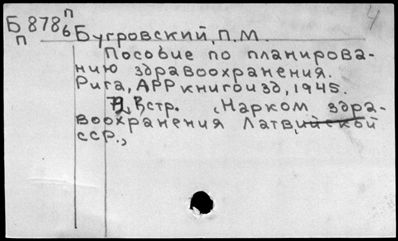 4
Б 8786 п
п
Бугровский, П.М.
Пособие по планирова-
нию здравоохранения.
Рига, АРР книгоизд, 1945.
стр. (Нарком здра-
воохранения Латвийской
ССР.,